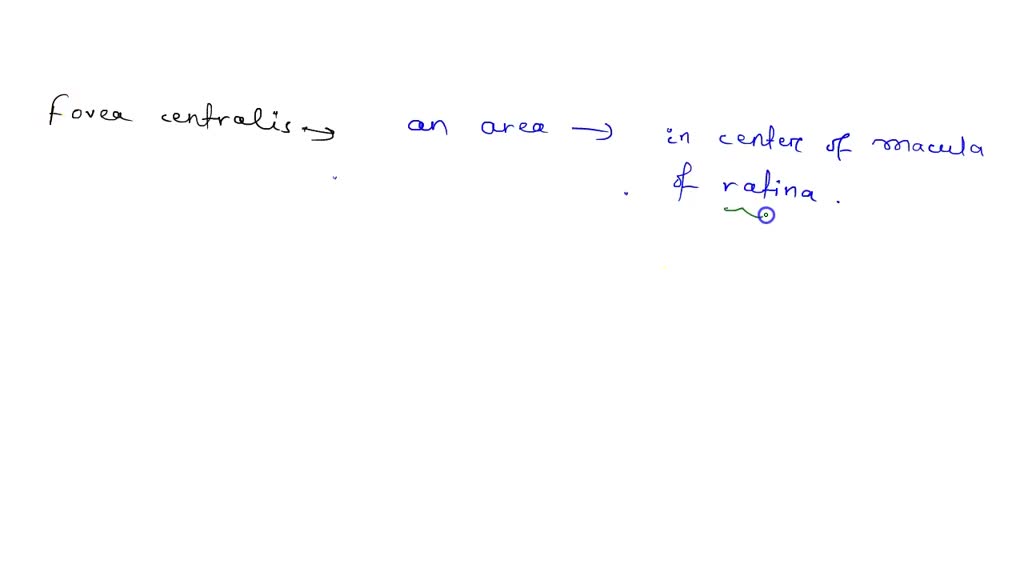 Fovea centralis → an area → in center of macula
of rafina.